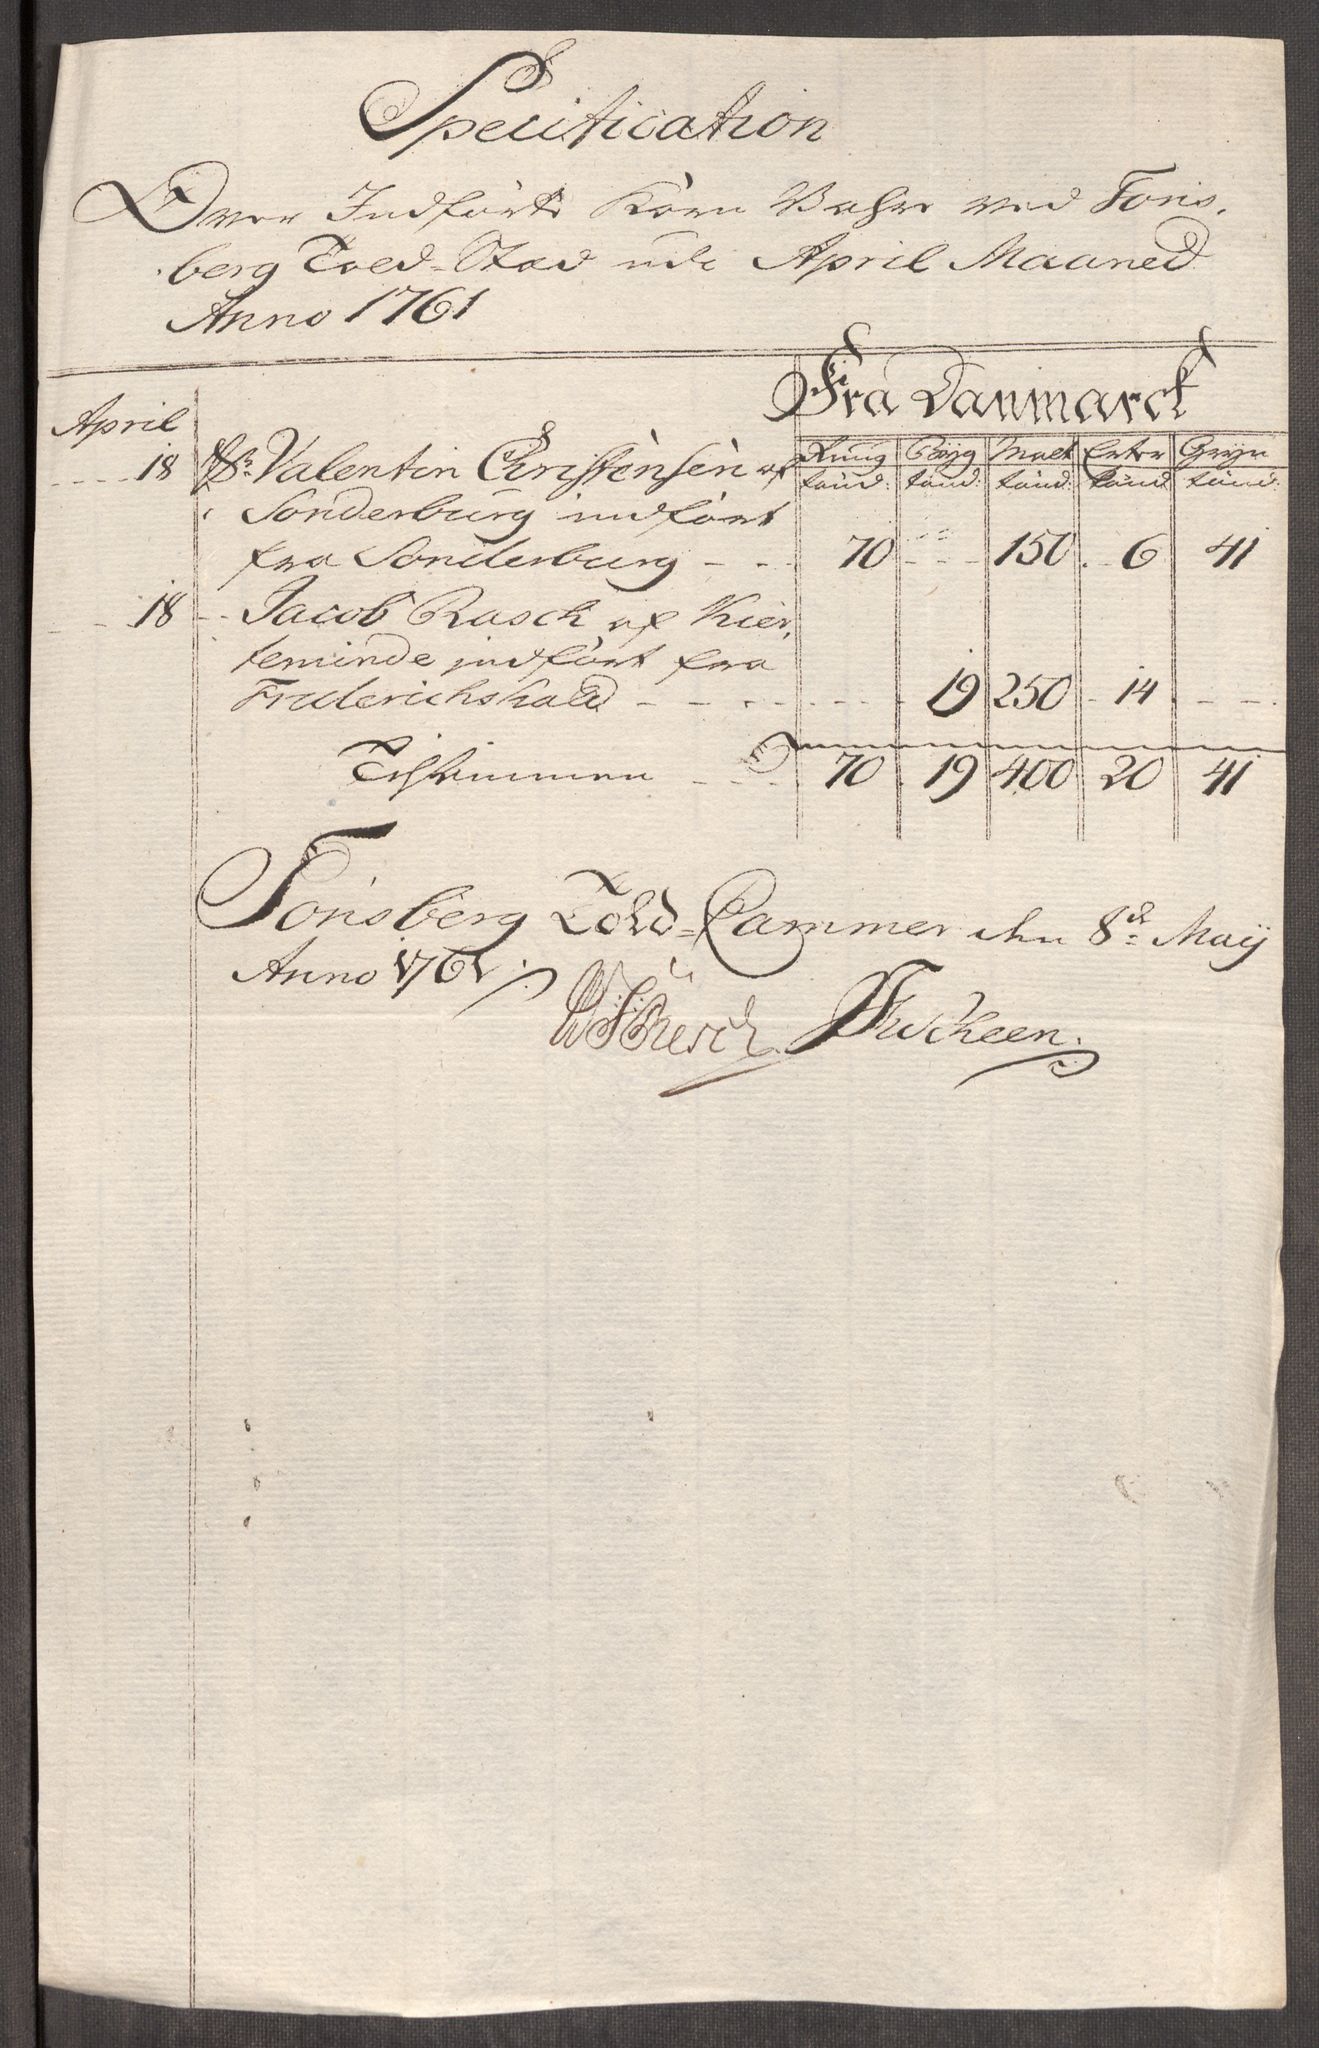 Specification
Over Indförte Korn Vahre ved Tons,
berg Told-Stad udi April Maaned
Anno 1761
Fra Danmarck
April
Rung Byg Malt Erter Gryn
tønd: tønd: tønd: tønd: tønd:
18 Sr. Valentin Christensen af
Sonderburg indfört
fra Sonderburg - - - 70 - - - 150 - 6 41
18 - Jacob Rasch af Kier,
teminde indfört fra
Friderichshald - - - - - - 19 250 - 14 - - -
Tilsammen - - - 70 19 400 20 41
Tonsberg Told-Cammer den 8de May
Anno 1761.